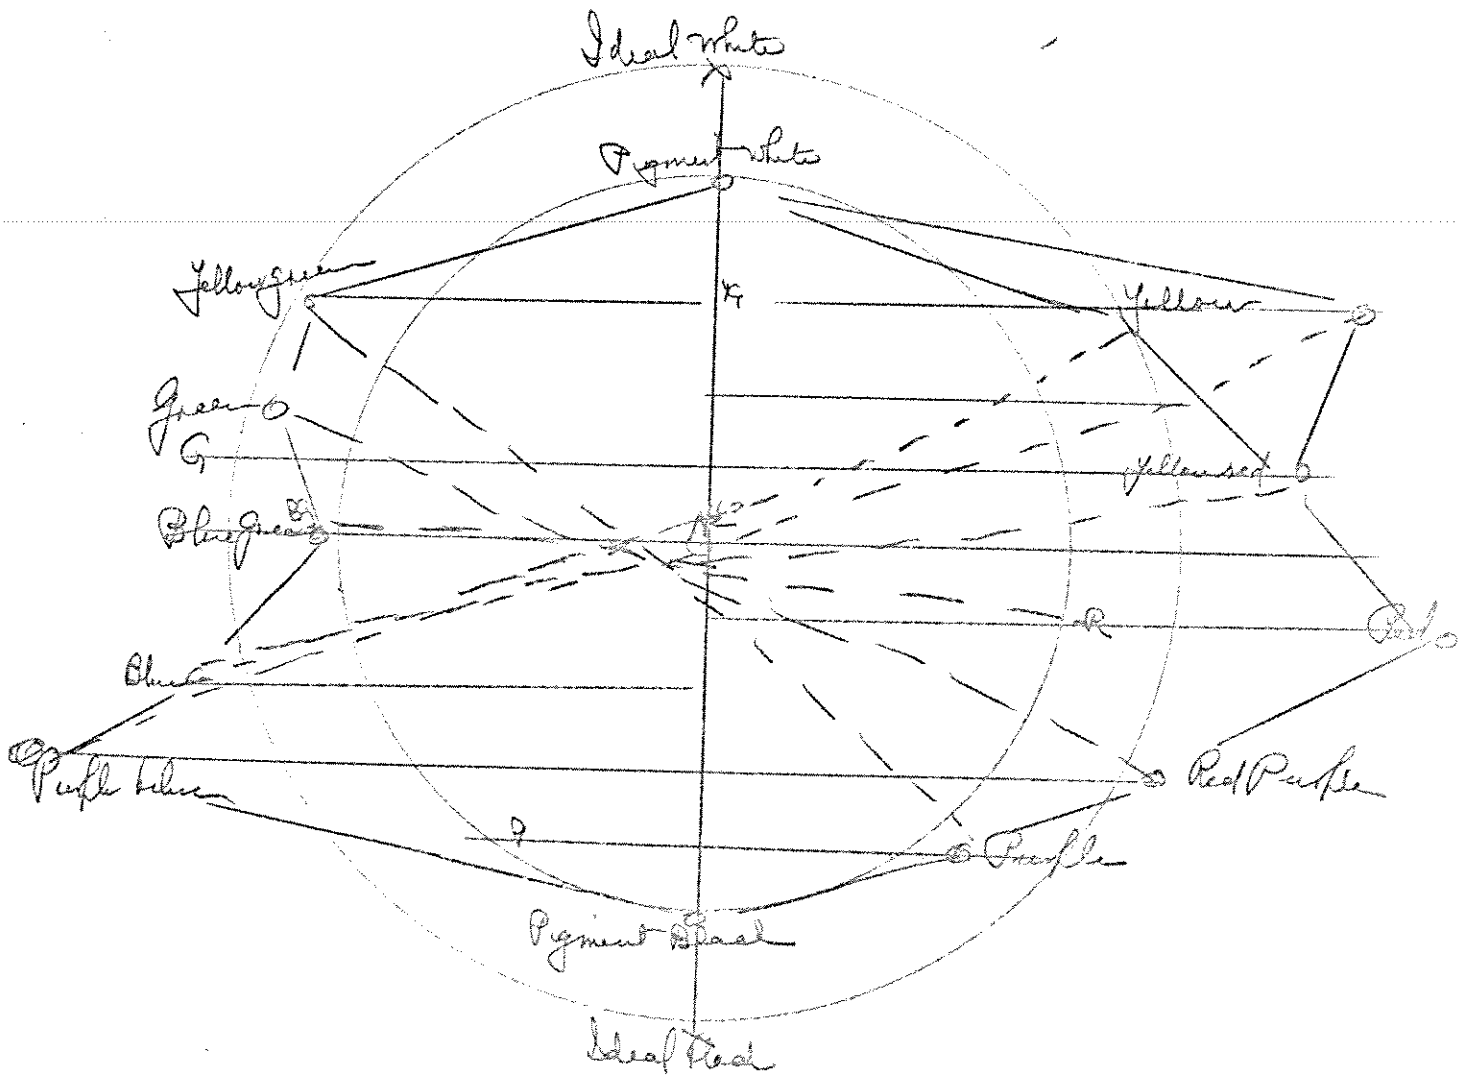 Ideal White
Pigment White
Yellow green
YG
Yellow
Green
G
Yellow red
BG
Blue Green
N
R
Red
Blue
Purple blue
Red Purple
P
Purple
Pigment Black
Ideal Black